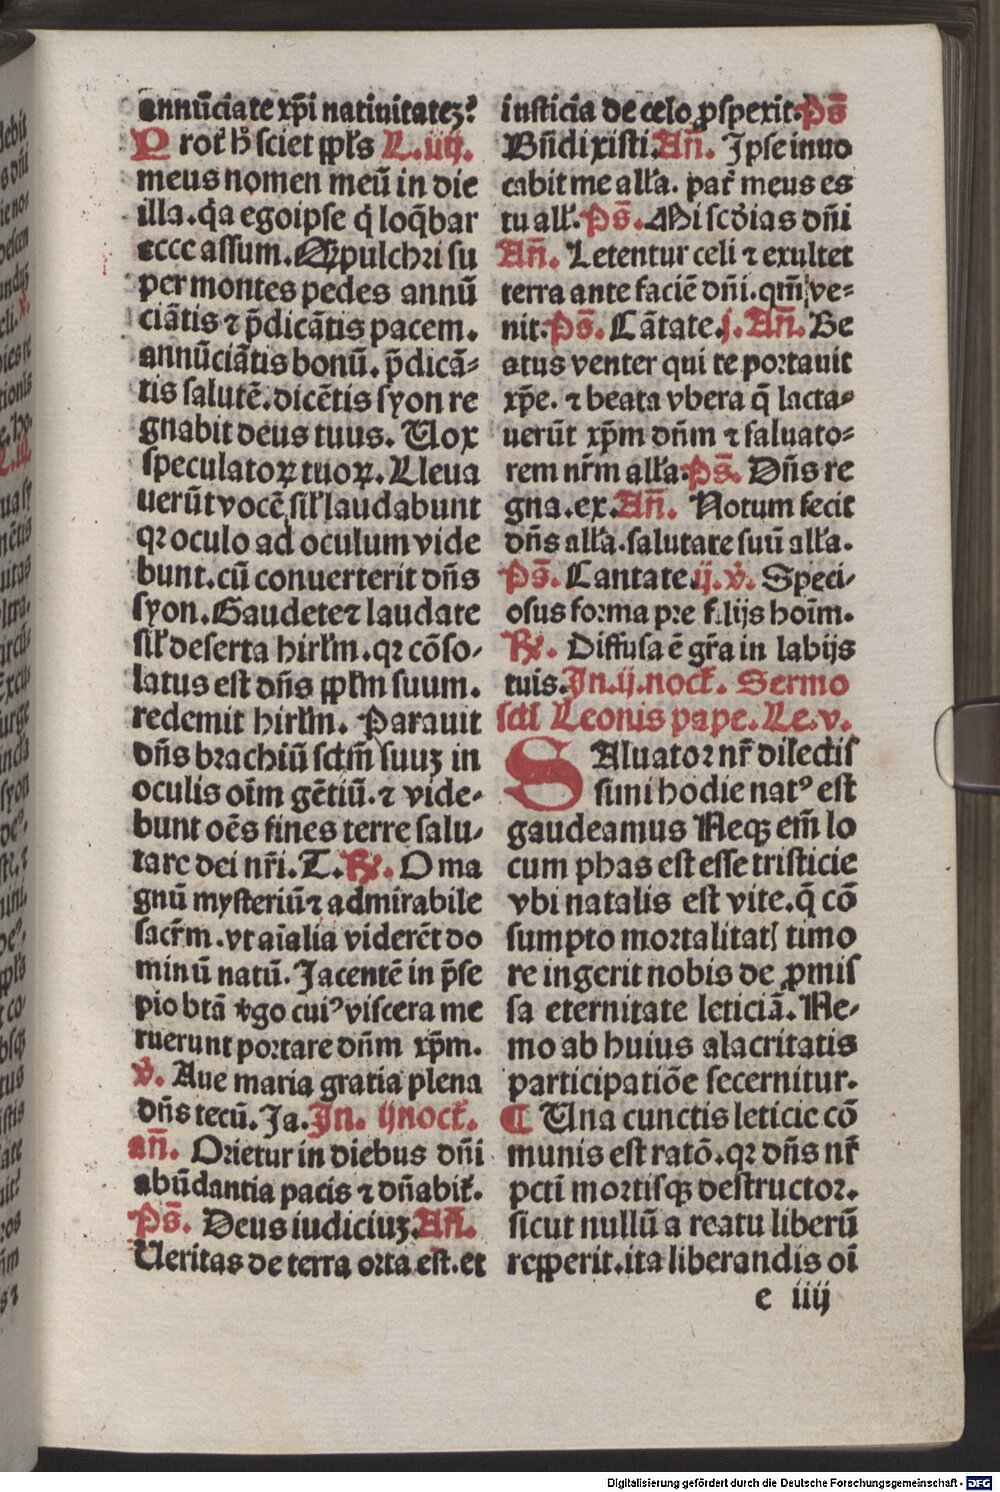 annūciate xp̄i natiuitatez?
P rot hꝰ sciet ppl's L.iiij.
meus nomen meū in die
illa. q̇a ego ipse q̇ loq̄bar
ecce assum. Q̄ pulchri su
per montes pedes annū
ciātis ⁊ p̄dicātis pacem.
annūciātis bonū. p̄dicā⸗
tis salutē. dicētis syon re
gnabit deus tuus. Uox
speculatoꝝ tuoꝝ. Lleua
uerūt vocē sil' laudabunt
qꝛ oculo ad oculum vide
bunt. cū conuerterit dn̄s
syon. Gaudete ⁊ laudate
sil' deserta hirl'm. qꝛ cōso⸗
latus est dn̄s ppl'm suum.
redemit hirl'm. Parauit
dn̄s brachiū sctm̄ suuz in
oculis oīm gētiū. ⁊ vide⸗
bunt oēs fines terre salu⸗
tare dei nr̄i. T. ℟. O ma
gnū mysteriū ⁊ admirabile
sacr̄m. vt aīalia viderēt do
minū natū. Jacentē in p̄se
pio btā v̇go cuiꝰ viscera me
ruerunt portare dn̄m xp̄m.
v̇. Aue maria gratia plena
dn̄s tecū. Ja. Jn. ij noct̄.
an̄. Orietur in diebus dn̄i
abūdantia pacis ⁊ dn̄abit̄.
Ps̄. Deus iudiciuz. An̄.
Ueritas de terra orta est. et
iusticia de celo ꝓspexit. Ps̄
Bn̄dixisti. An̄. Jpse inuo
cabit me all'a. pat̄ meus es
tu all'. Ps̄. Misc̄dias dn̄i
An̄. Letentur celi ⁊ exultet
terra ante faciē dn̄i. qm̄ ve⸗
nit. Ps̄. Cātate. j. An̄. Be
atus venter qui te portauit
xp̄e. ⁊ beata vbera q̄ lacta⸗
uerūt xp̄m dn̄m ⁊ saluato⸗
rem nr̄m all'a. Ps̄. Dn̄s re
gna. ex. An̄. Notum fecit
dn̄s all'a. salutare suū all'a.
Ps̄. Cantate. ij. v̇. Speci⸗
osus forma pre filijs hoīm.
℟. Diffusa ē gr̄a in labijs
tuis. Jn. ij. noct̄. Sermo
scti Leonis pape. Le. v.
SAluator nr̄ dilectis
simi hodie natꝰ est
gaudeamus Neqꝫ em̄ lo
cum phas est esse tristicie
vbi natalis est vite. q̄ cō
sumpto mortalitatꝭ timo
re ingerit nobis de ꝓmis
sa eternitate leticiā. Ne⸗
mo ab huius alacritatis
participatiōe secernitur.
¶ Una cunctis leticie cō
munis est ratō. qꝛ dn̄s nr̄
pcti mortisqꝫ destructor.
sicut nullū a reatu liberū
repperit. ita liberandis oī
e iiij
Digitalisierung gefördert durch die Deutsche Forschungsgemeinschaft - DFG